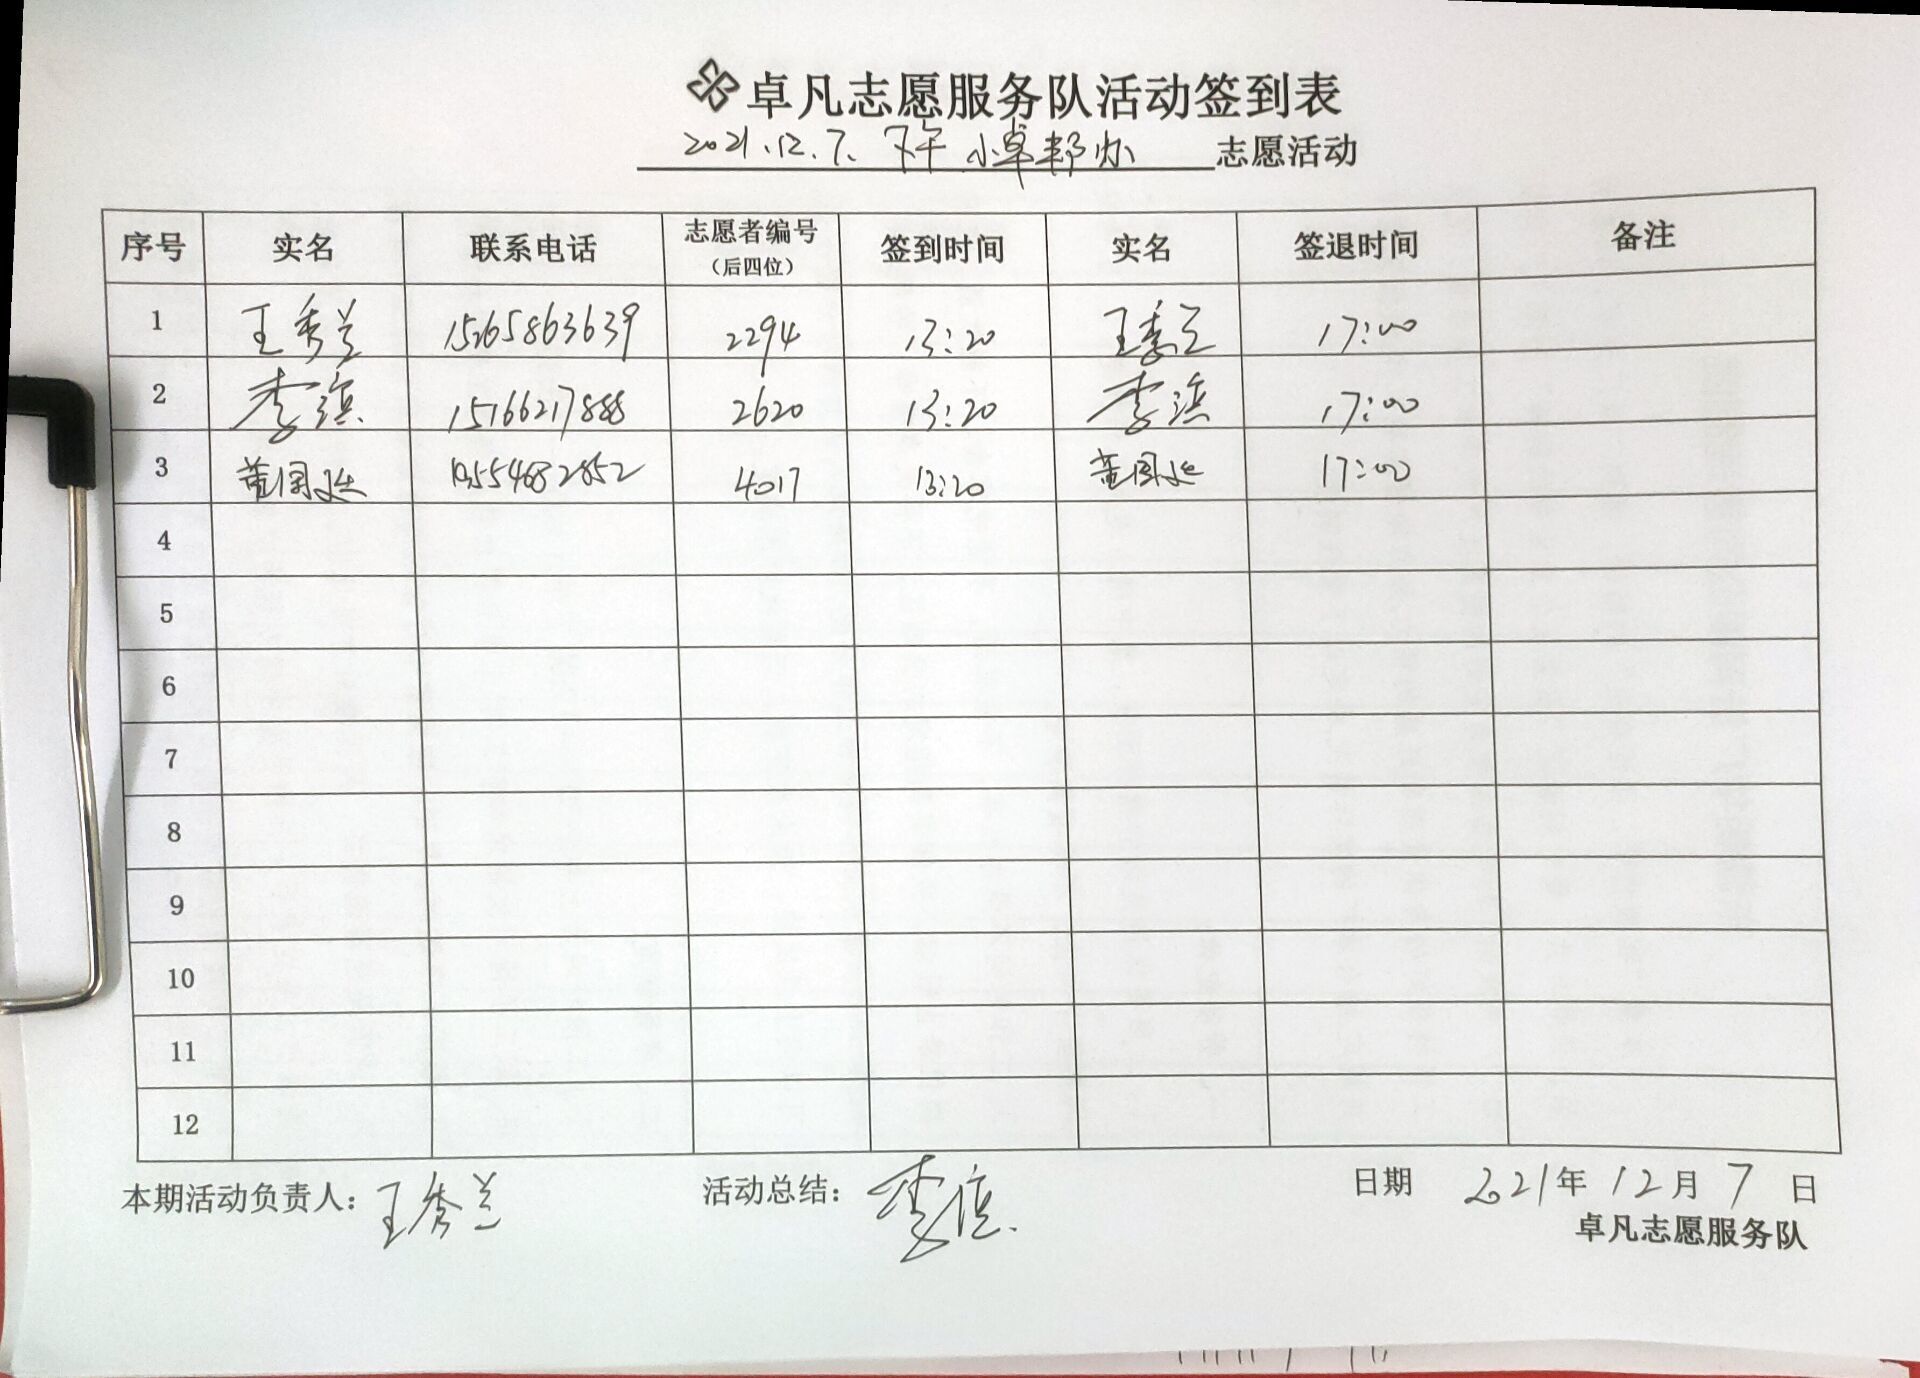 卓凡志愿服务队活动签到表
2021.12.7.下午 小卓帮办 志愿活动
序号 实名 联系电话 志愿者编号（后四位） 签到时间 实名 签退时间 备注
1 王秀兰 15265863639 2294 13:20 王秀兰 17:00
2 李滨 15166217888 2620 13:20 李滨 17:00
3 董国 4017 13:20 董国 17:00
4
5
6
7
8
9
10
11
12
本期活动负责人：王秀兰 活动总结：李滨 日期 2021年12月7日
卓凡志愿服务队